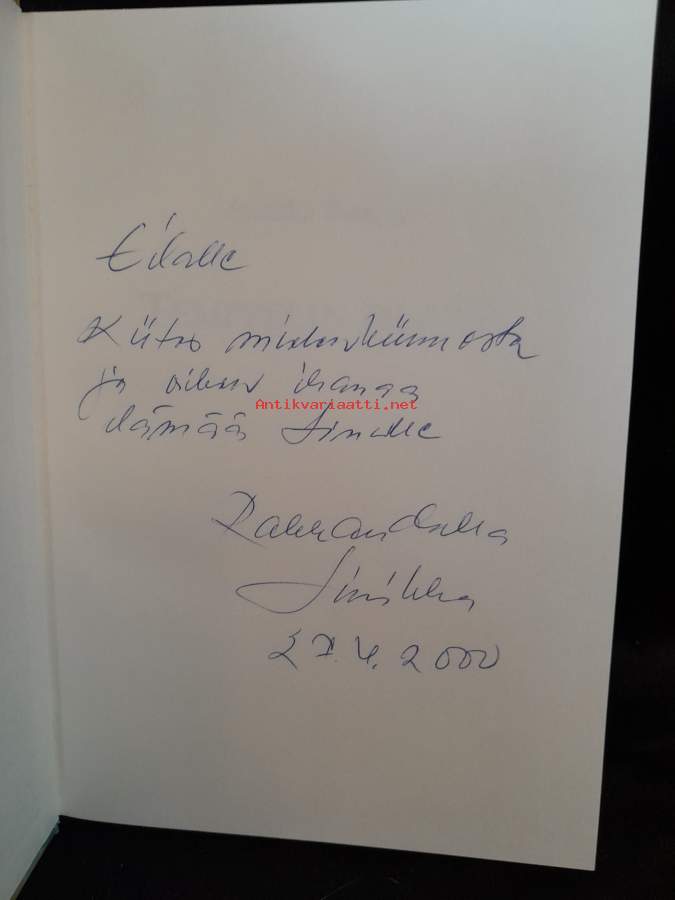 Eilalle
Kiitos mielenkiinnosta
ja oikein ihanaa
Antikvariaatti.net
elämää Sinulle
Rakkaudella
Sinikka
27.4.2000